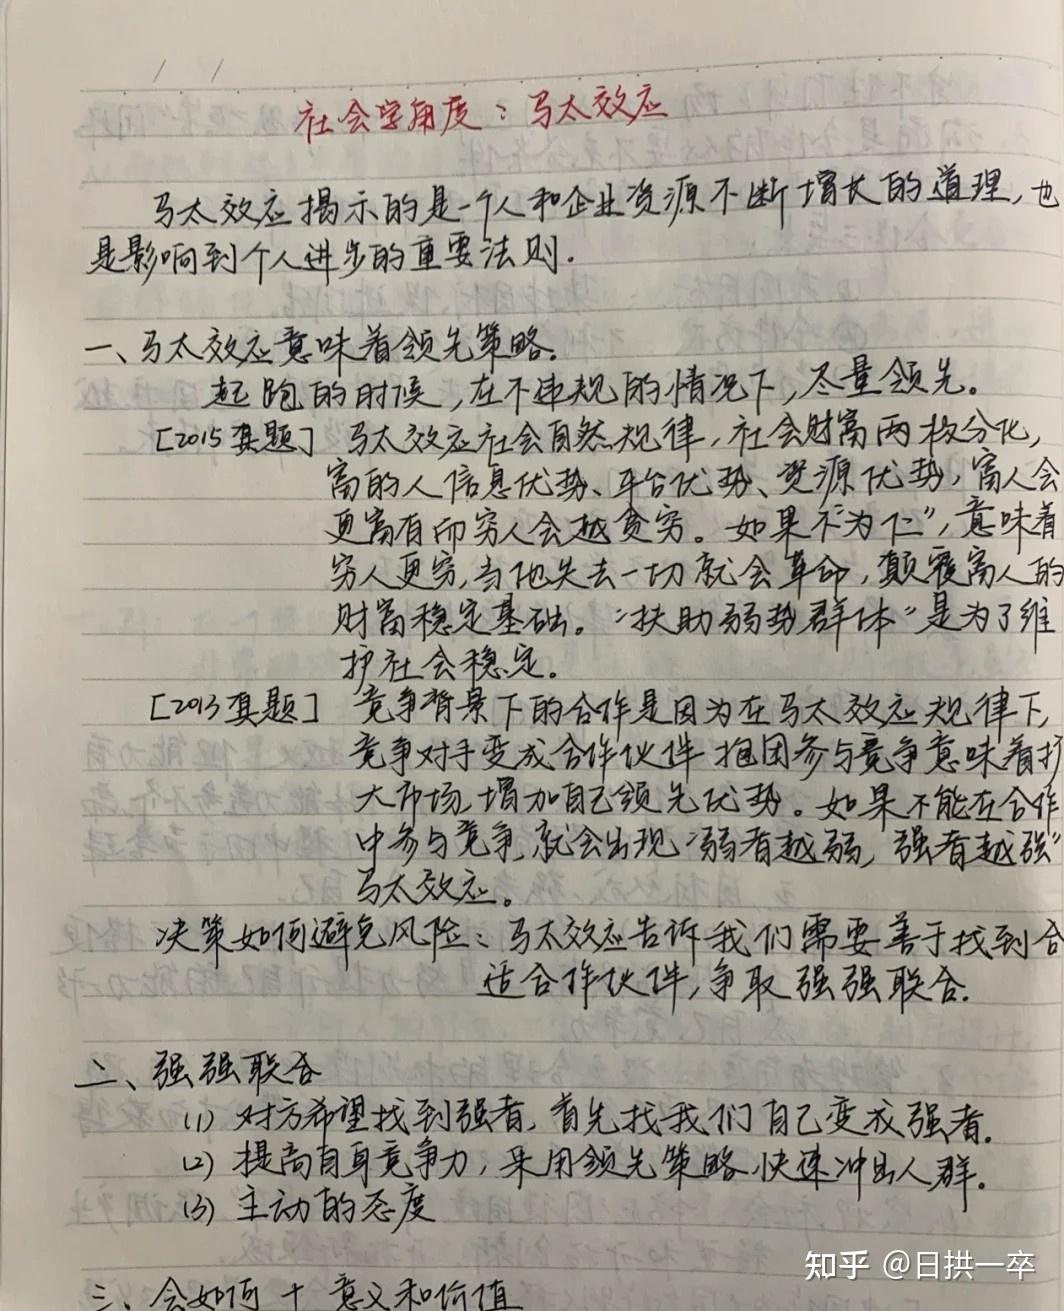 社会学角度：马太效应
马太效应揭示的是一个人和企业资源不断增长的道理，也
是影响到个人进步的重要法则.
一、马太效应意味着领先策略.
起跑的时候，在不违规的情况下，尽量领先。
[2015真题] 马太效应社会自然规律，社会财富两极分化，
富的人信息优势、平台优势、资源优势，富人会
更富有而穷人会越贫穷。如果不“为仁”，意味着
穷人更穷，当他失去一切就会革命，颠覆富人的
财富稳定基础。“扶助弱势群体”是为了维
护社会稳定。
[2013真题] 竞争背景下的合作是因为在马太效应规律下，
竞争对手变成合作伙伴抱团参与竞争意味着扩
大市场，增加自己领先优势。如果不能在合作
中参与竞争，就会出现“弱者越弱，强者越强”
马太效应。
决策如何避免风险：马太效应告诉我们需要善于找到合
适合作伙伴，争取强强联合.
二、强强联合
(1) 对方希望找到强者，首先找我们自己变成强者.
(2) 提高自身竞争力，采用领先策略快速冲出人群.
(3) 主动的态度
三、会如何+意义和价值
知乎 @日拱一卒